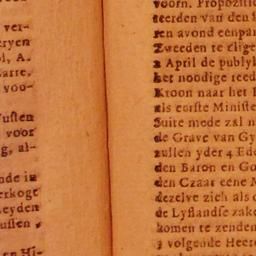 ver-
eryen
ol, A.
Barre,
voo-
Vusten
voor
g, al-
nde in
erkoge
Leyden
uslen,
en Hi-
voorn. Propozitie
teerden van den
ren avond eenpar
Zweeden te
2 April de publyk
het noodige reed
Kroon naar het
als eerste Ministe
Suite mede zal n
de Grave van Gy
zullen yder 4 Ede
den Baron en Go
den Czaar eene M
dezelve zich als c
de Lyflandse zake
komen te zenden
3 volgende Heere